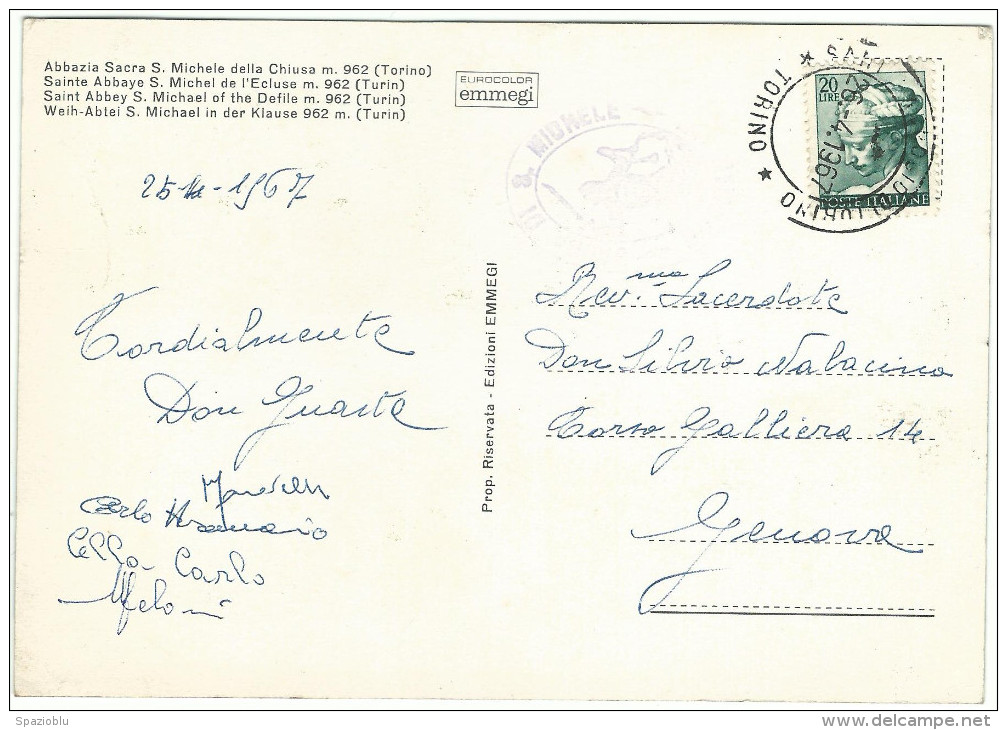 Abbazia Sacra S. Michele della Chiusa m. 962 (Torino)
Sainte Abbaye S. Michel de l'Ecluse m. 962 (Turin)
Saint Abbey S. Michael of the Defile m. 962 (Turin)
Weih-Abtei S. Michael in der Klause 962 m. (Turin)
EUROCOLOR
emmegi
S. MICHELE
20
LIRE
POSTE ITALIANE
TORINO * TORINO *
26.-4.1967
1967
Cordialmente
Don Guasta
Carlo
Cella Carlo
Meloni
Prop. Riservata - Edizioni EMMEGI
Rev.mo Sacerdote
Don Silvio
Corso Galliera 14
Genova
Spazioblu
delcampe.net